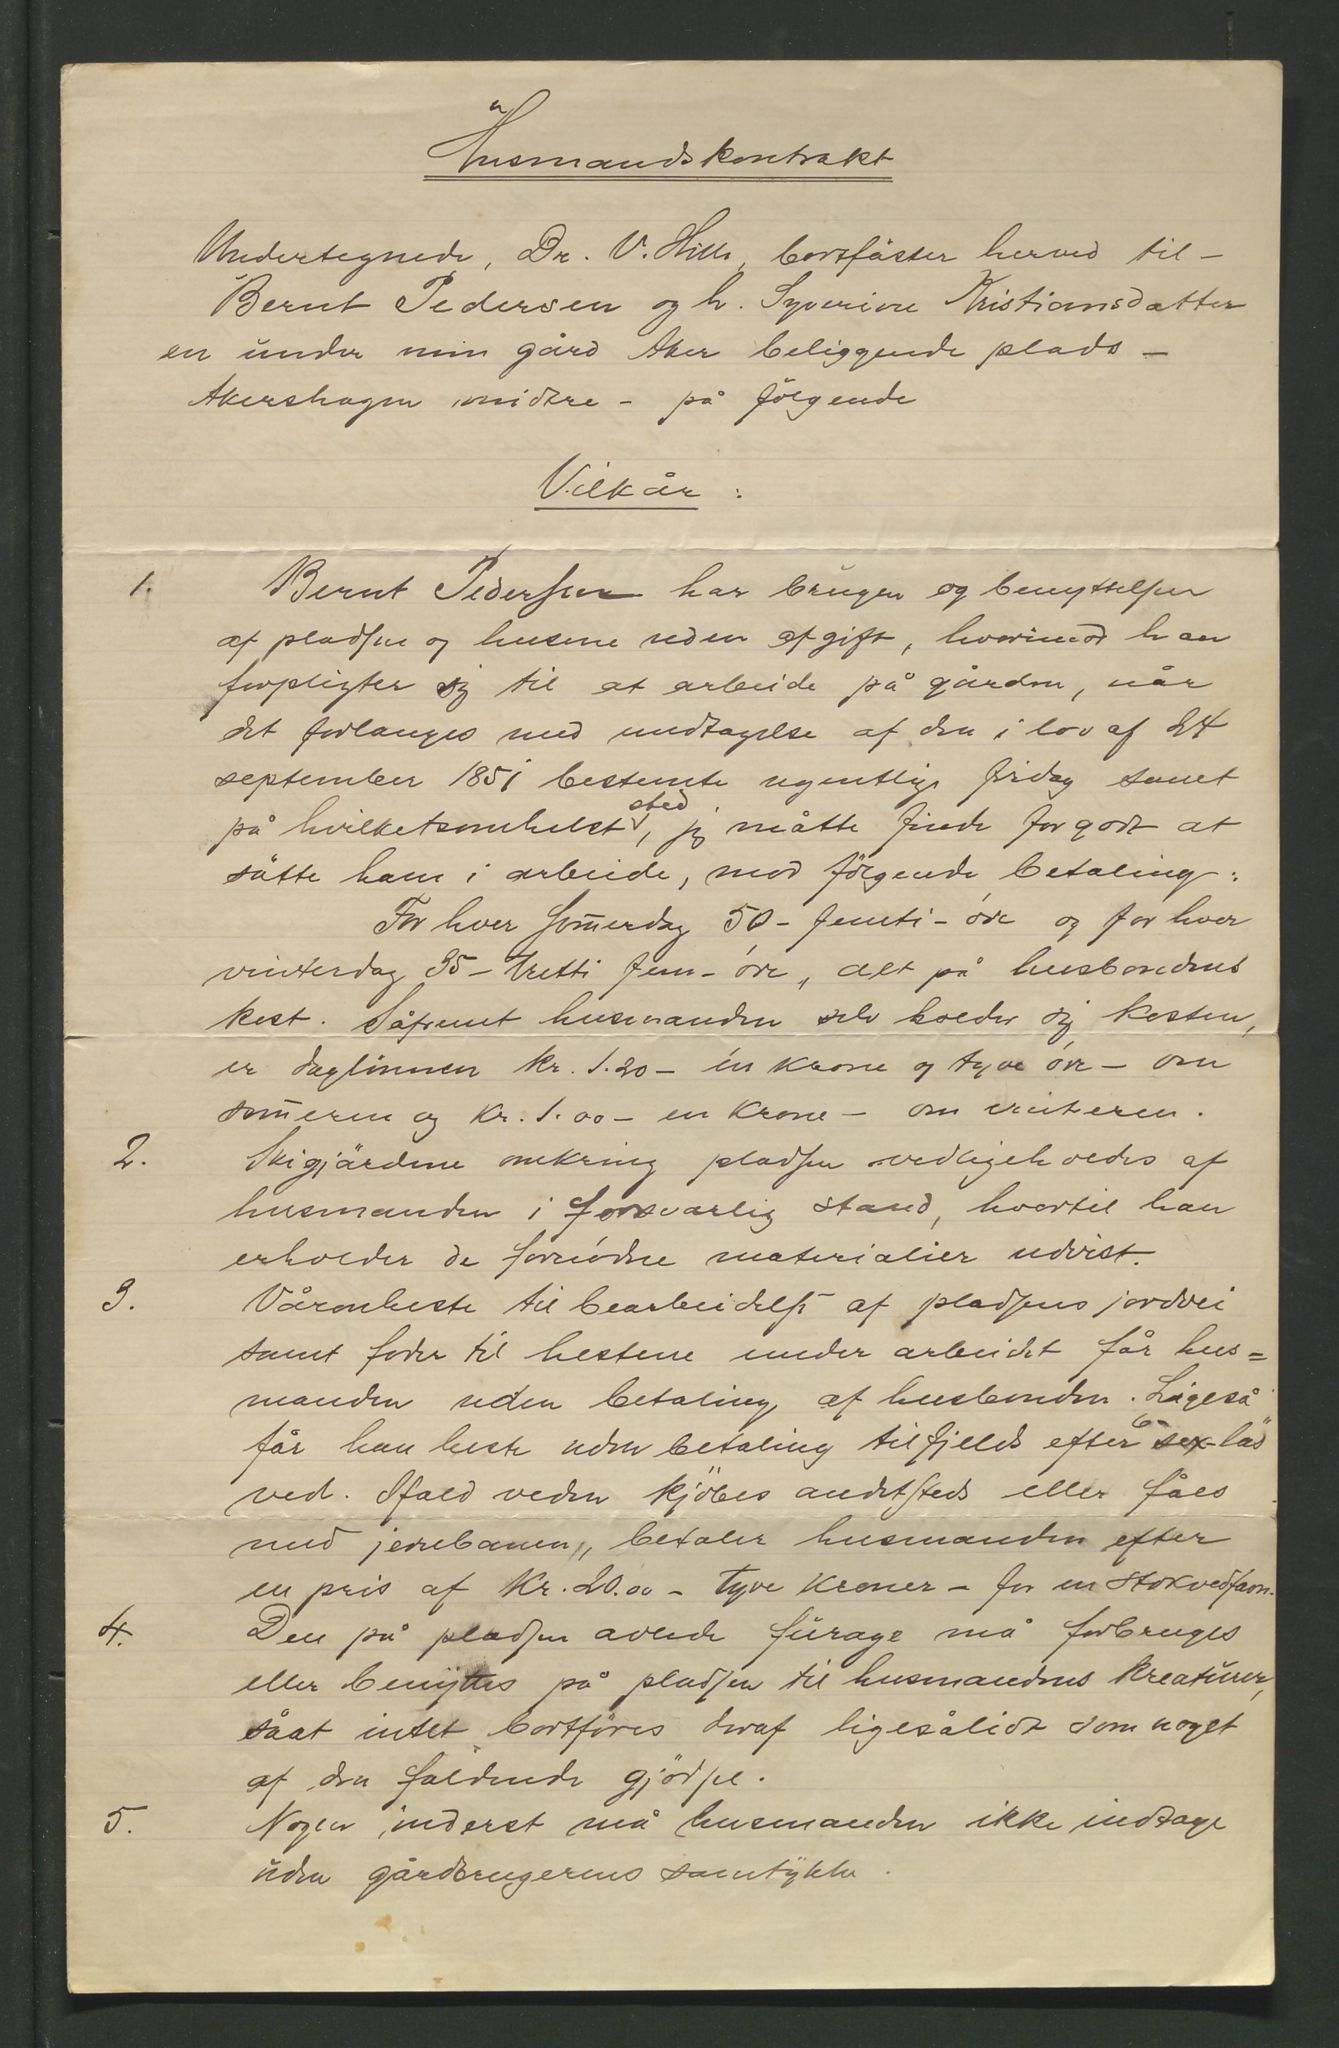 Husmandskontrakt
Undertegnede, Dr. V. Hille, bortfäster herved til -
Bernt Pedersen og h. Syverine Kristiansdatter
en under min gård Aker beliggende plads -
Akershagen midtre - på følgende
Vilkår :
1. Bernt Pedersen har brugen og benyttelsen
af pladsen og husene uden afgift, hvorimod han
forpligter sig til at arbeide på gården, når
det forlanges med undtagelse af den i lov af 24
september 1851 bestemte ugentlige fridag samt
på hvilketsomhelst sted, jeg måtte finde for godt at
sätte ham i arbeide, mod følgende betaling:
For hver som̄erdag 50 - femti - øre og for hver
vinterdag 35 - tretti fem - øre, alt på husbondens
kost. Såfremt husmanden selv holder sig kosten,
er daglønnen kr. 1.20 - én krone og tyve øre - om
som̄eren og kr. 1.00 - en krone - om vinteren.
2. Skigjärdene omkring pladsen vedligeholdes af
husmanden i forsvarlig stand, hvortil han
erholder de fornödne materialier udvist.
3. Våronheste til bearbeidelse af pladsens jordvei
samt foder til hestene under arbeidet får hus=
manden uden betaling af husbonden. Ligeså
får han heste uden betaling tilfjelds efter 6 sex läs
ved. Ifald veden kjöbes andetsteds eller fåes
med jernbanen, betaler husmanden efter
en pris af Kr. 20.00 - tyve kroner - for en stokvedfavn.
4. Den på pladsen avlede fürage må forbruges
eller benyttes på pladsen til husmandens kreaturer,
såat intet bortføres deraf ligesålidt som noget
af den faldende gjödsel.
5. Nogen inderst må husmanden ikke indtage
uden gårdbrugerens samtykke.